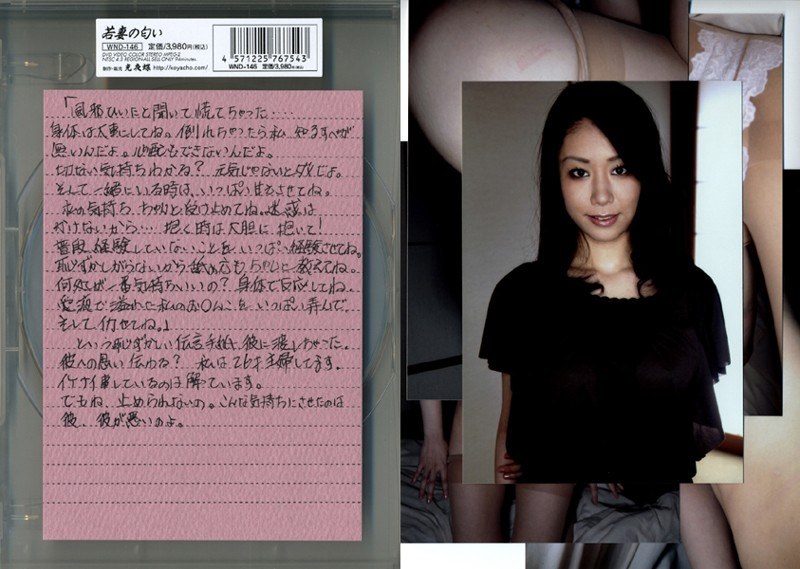 若妻の匂い
WND-146 定価/3,980円(税込)
DVD VIDEO COLOR STEREO MPEG-2
http://koyacho.com/
4 571225 767543
WND-146 定価/3,980円(税込)
「風邪ひいたと聞いて慌てちゃった…
身体は大事にしてね。倒れちゃったら私 知るすべが
無いんだよ。心配もできないんだよ。
切ない気持ちわかる? 元気じゃないとダメだよ。
そして一緒にいる時は、いっぱい甘えさせてね。
私の気持ち、ちゃんと受け止めてね。迷惑は
かけないから… 抱く時は大胆に抱いて!
普段経験していないことを いっぱい経験させてね。
恥ずかしがらないから 舐め方も ちゃんと教えてね。
何処が一番気持ちいいの? 身体で反応してね。
愛液で溢れた私のお〇んこを いっぱい弄んで、
そして イカせてね。」
という恥ずかしい伝言手紙、彼に渡しちゃった。
彼への思い伝わる? 私は26才主婦してます。
イケナイ事しているのは解っています。
でもね、止められないの。こんな気持ちにさせたのは
彼、彼が悪いのよ。